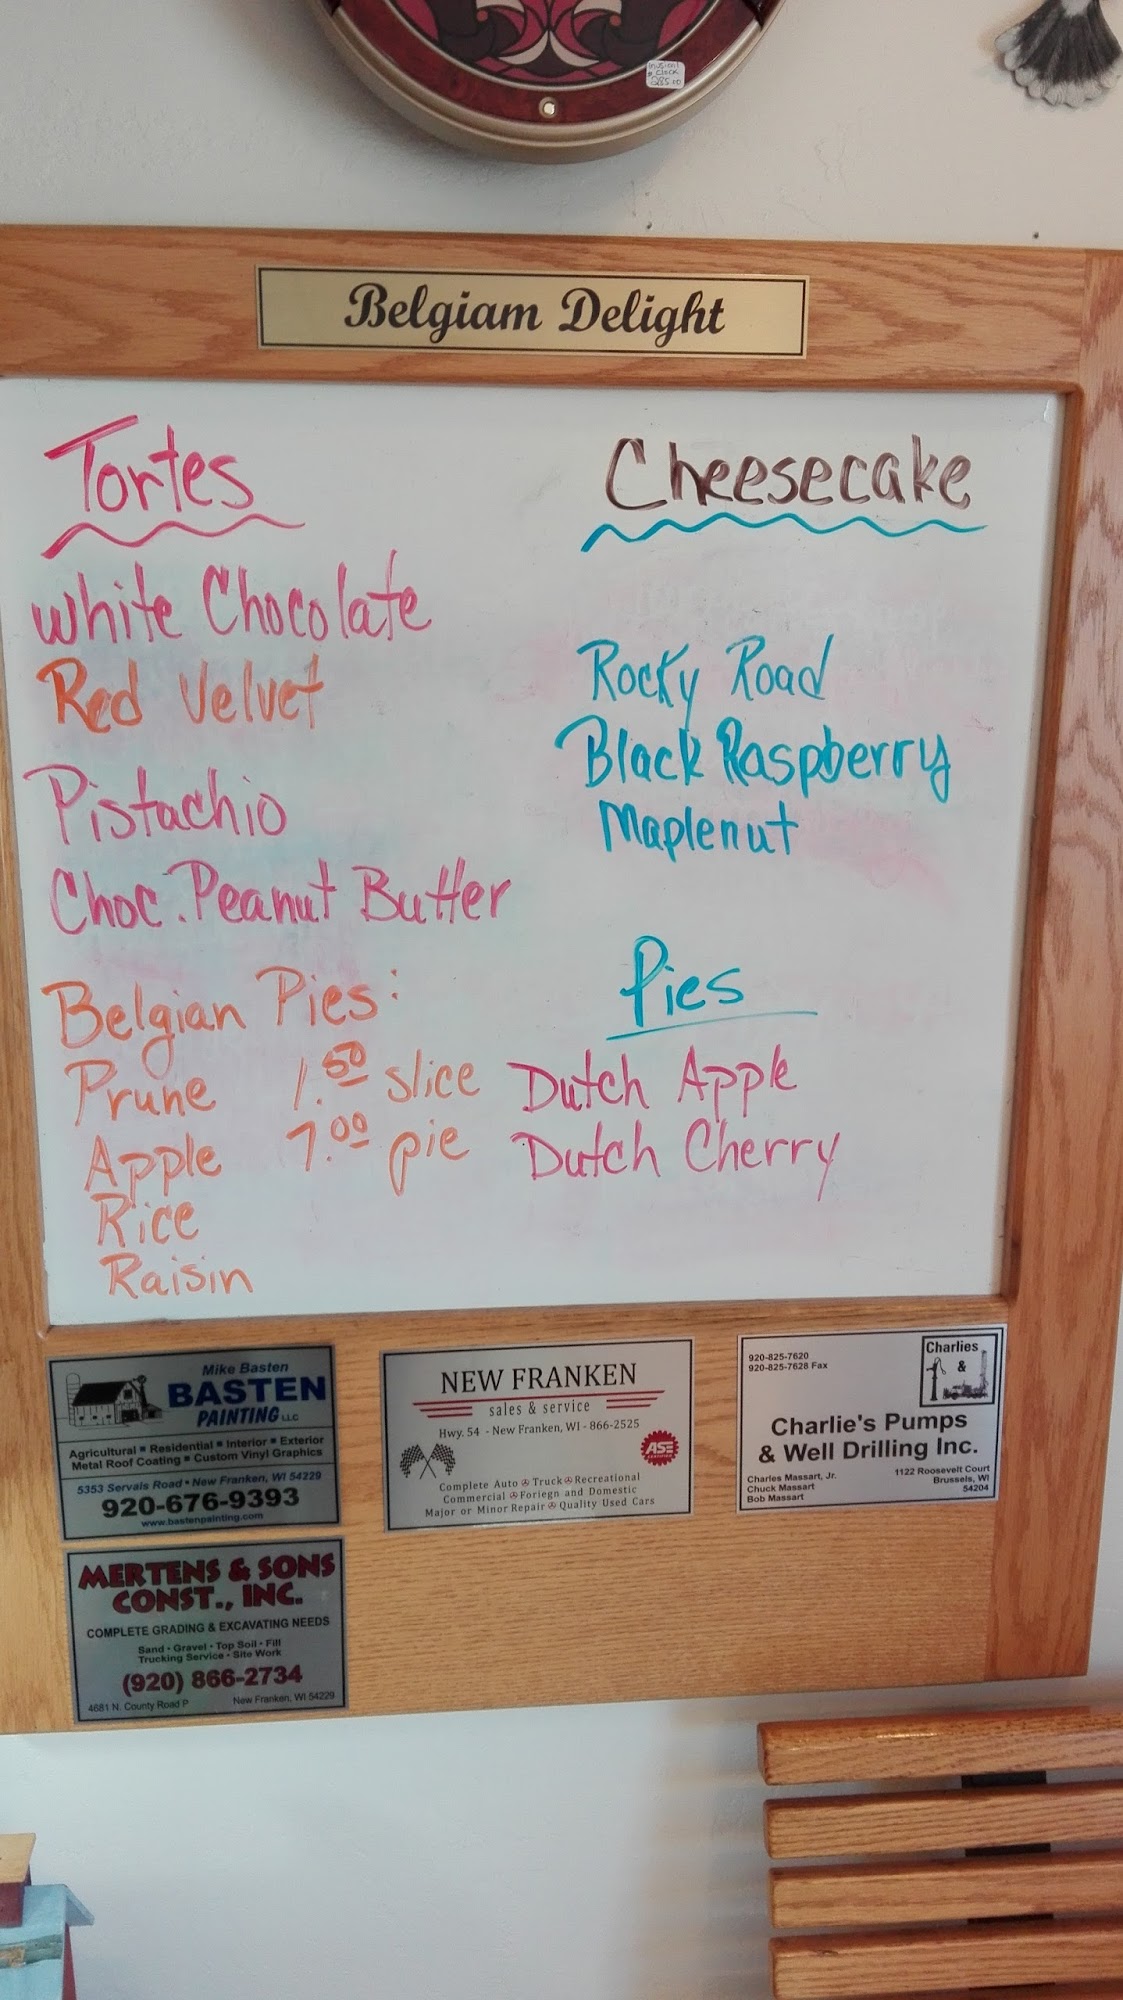 Belgiam Delight
Tortes
White Chocolate
Red Velvet
Pistachio
Choc. Peanut Butter
Cheesecake
Rocky Road
Black Raspberry
Maplenut
Belgian Pies:
Prune 1.50 slice
Apple 7.00 pie
Rice
Raisin
Pies
Dutch Apple
Dutch Cherry
Mike Basten
BASTEN
PAINTING LLC
Agricultural ▪ Residential ▪ Interior ▪ Exterior
Metal Roof Coating ▪ Custom Vinyl Graphics
5353 Servais Road • New Franken, WI 54229
920-676-9393
www.bastenpainting.com
NEW FRANKEN
sales & service
Hwy. 54 - New Franken, WI - 866-2525
ASE
CERTIFIED
Complete Auto Truck Recreational
Commercial Foriegn and Domestic
Major or Minor Repair Quality Used Cars
920-825-7620
920-825-7628 Fax
Charlies
&
Charlie's Pumps
& Well Drilling Inc.
Charles Massart, Jr.
Chuck Massart
Bob Massart
1122 Roosevelt Court
Brussels, WI
54204
MERTENS & SONS
CONST., INC.
COMPLETE GRADING & EXCAVATING NEEDS
Sand • Gravel • Top Soil • Fill
Trucking Service • Site Work
(920) 866-2734
4681 N. County Road P New Franken, WI 54229